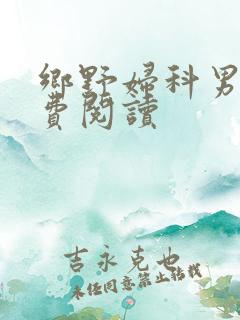 鄉野婦科男
費閱讀
吉永克也
未经同意禁止转载